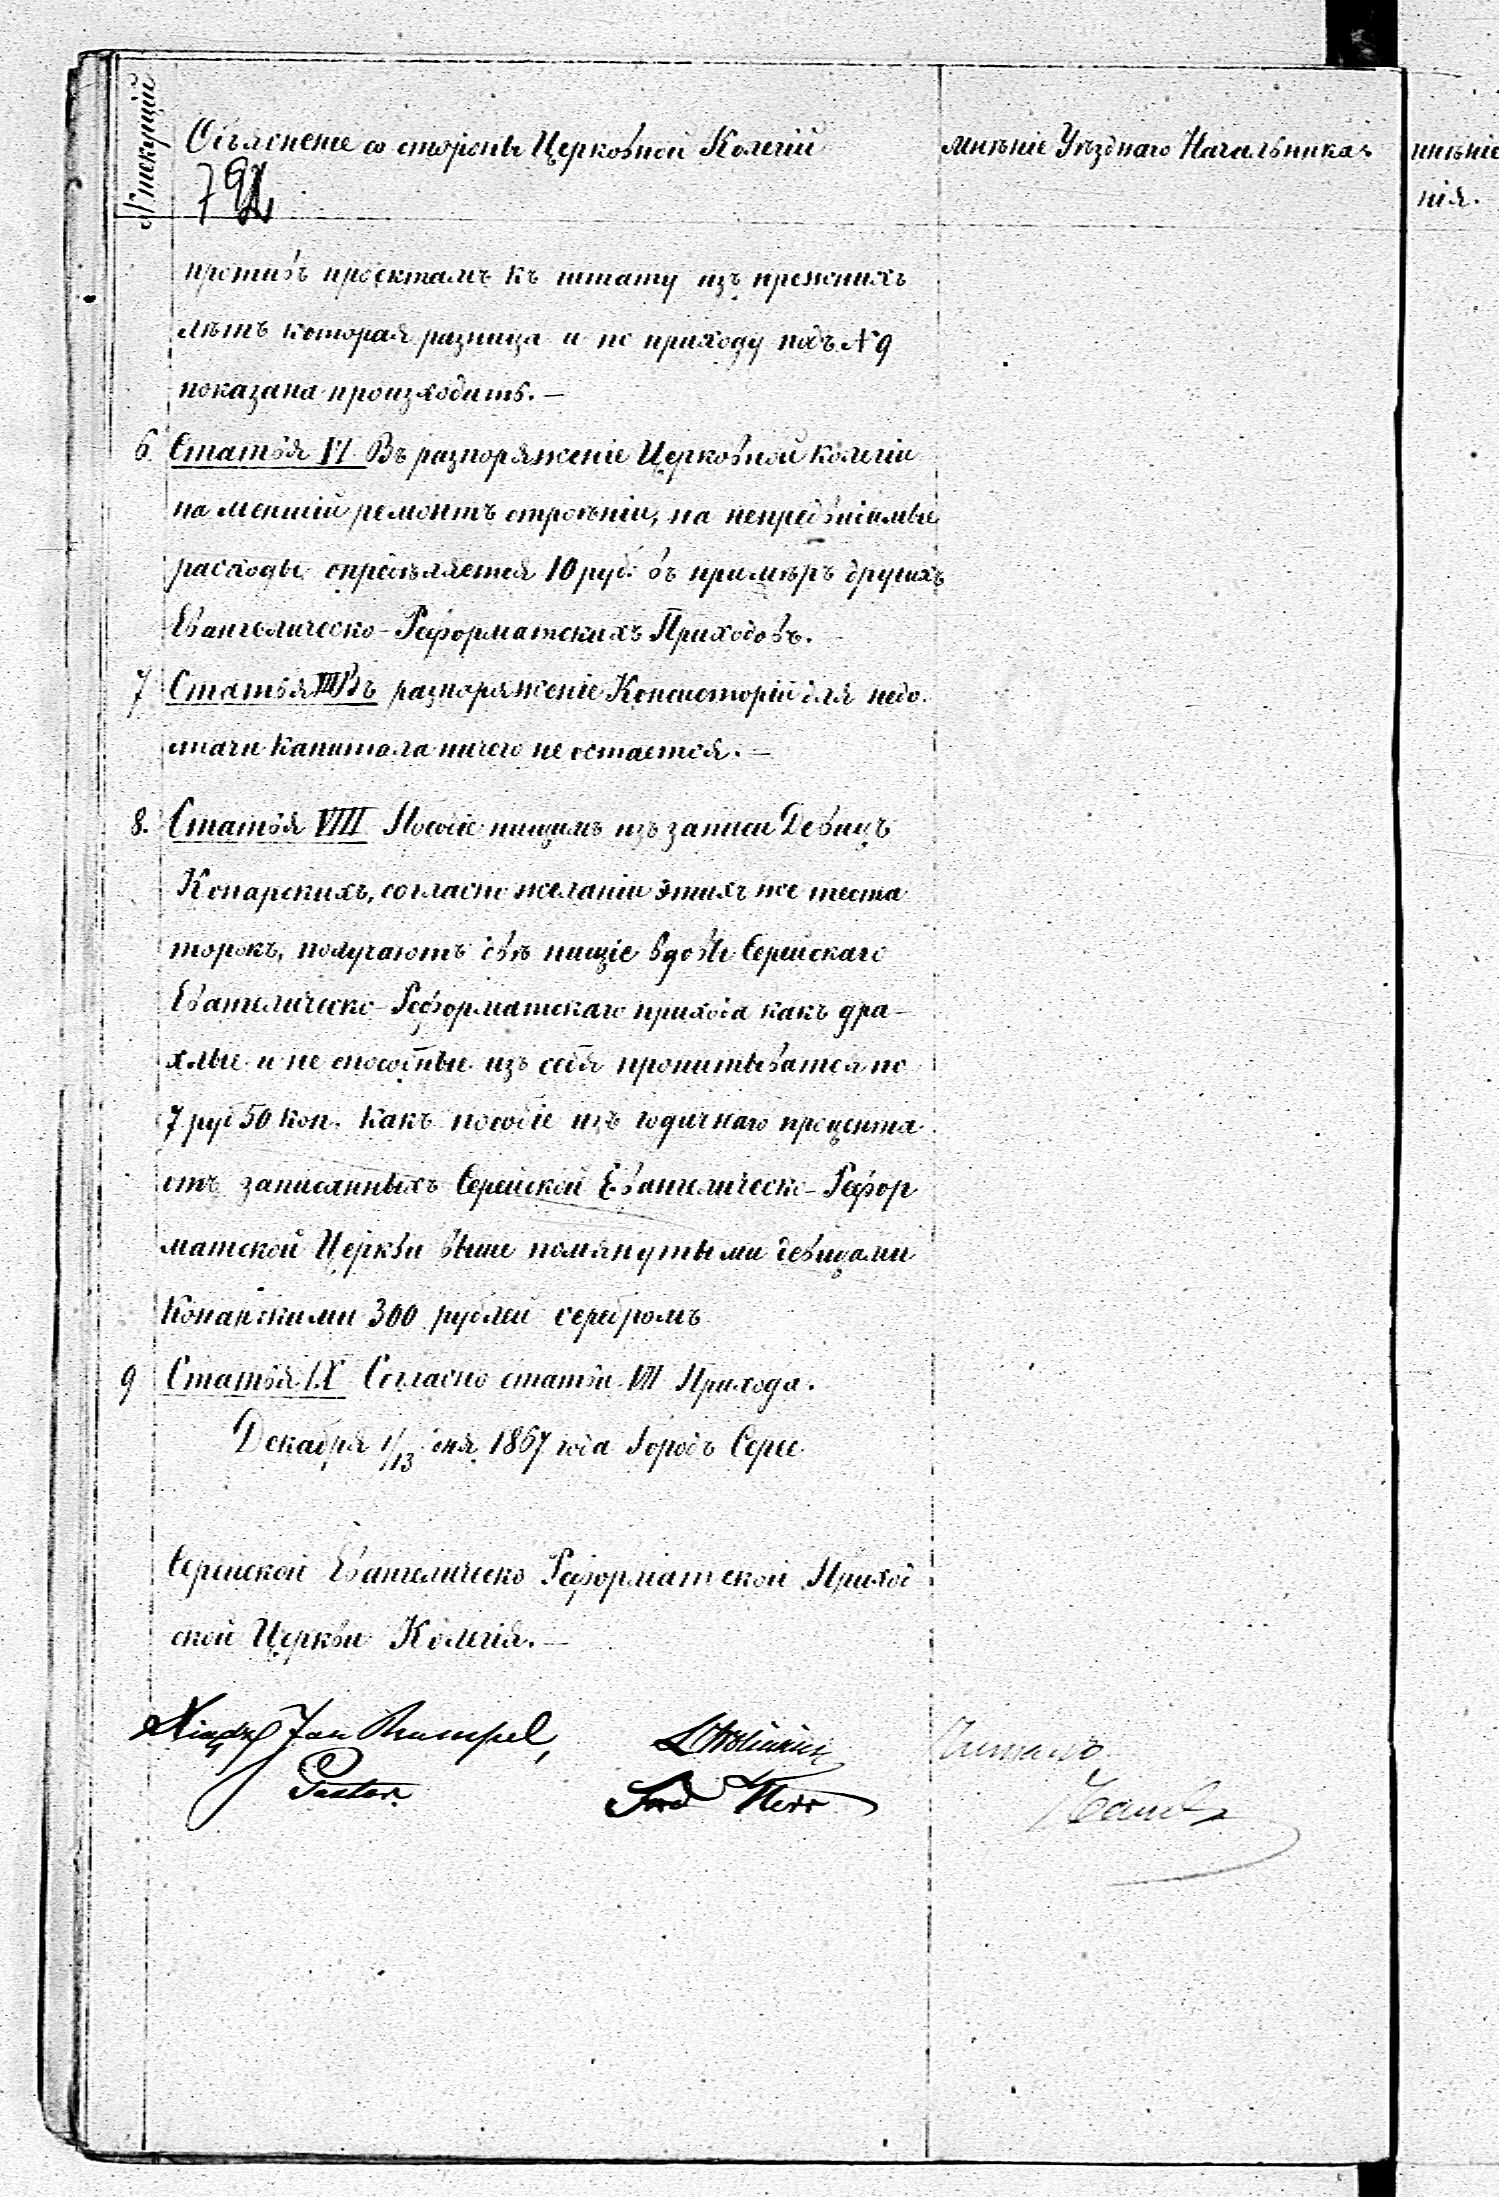 № текущій
Объяснение со стороны Церковной Колегіи
мнѣніе Уѣзднаго Начальника
мнѣніе
нія.
792
противъ проектамъ къ штату изъ прежнихъ
лѣтъ которая разница и по приходу подъ № 9
показана произходитъ. —
6. Статья VI Въ разпоряженіе Церковной Колегіи
на меншій ремонтъ строеніи, на непредвисимые
расходы опредѣляется 10 руб. въ примѣръ другихъ
Евангелическо-Реформатскихъ Приходовъ.
7 Статья VII Въ разпоряженіе Консисторіи для недо
стачи Капитала ничего не остается. —
8. Статья VIII Пособіе нищимъ изъ записи Девицъ
Конарскихъ, согласно желаніи этихъ же теста
торокъ, получаютъ двѣ нищіе вдовы Серейскаго
Евангелическо-Реформатскаго прихода какъ дра-
хлые и не способные изъ себя пропитыватся по
7 руб 50 коп. какъ пособіе изъ годичнаго процента
отъ записанныхъ Серейской Евангелическо-Рефор
матской Церкви выше помянутыми девицами
Конарскими 300 рублей серебромъ
9 Статья IX Согласно статьи VII Прихода.
Декабря 1/13 дня 1867 года Городъ Серее
Серейской Евангелическо Реформатской Приход
ской Церкви Колегія. —
Xiądz Jan Rumpel,
Pastor.
Ferd Kerr
Читалъ